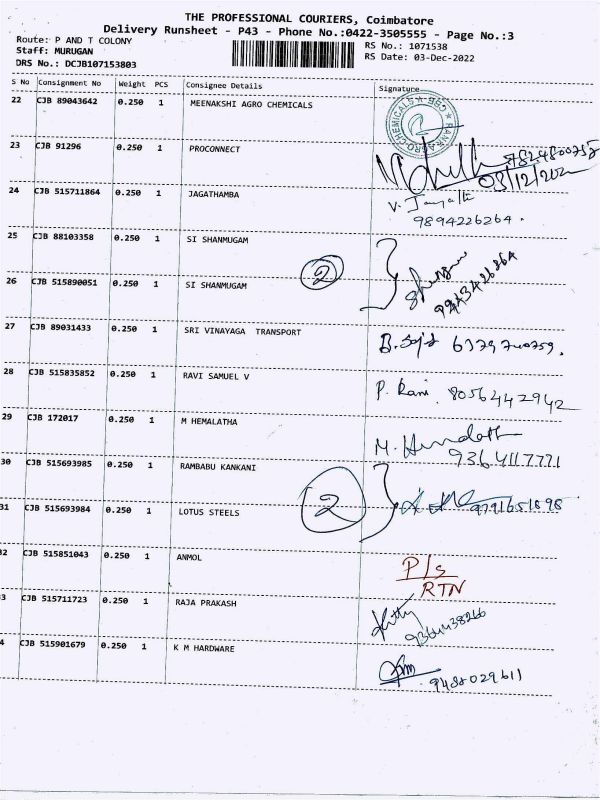 THE PROFESSIONAL COURIERS, Coimbatore
Delivery Runsheet - P43 - Phone No.:0422-3505555 - Page No.:3
Route: P AND T COLONY
Staff: MURUGAN
DRS No.: DCJB107153803
RS No.: 1071538
RS Date: 03-Dec-2022
S No Consignment No Weight PCS Consignee Details Signature
22 CJB 89043642 0.250 1 MEENAKSHI AGRO CHEMICALS
23 CJB 91296 0.250 1 PROCONNECT
7824800758
03/12/202
24 CJB 515711864 0.250 1 JAGATHAMBA
9894226264.
25 CJB 88103358 0.250 1 SI SHANMUGAM
2
26 CJB 515890051 0.250 1 SI SHANMUGAM
27 CJB 89031433 0.250 1 SRI VINAYAGA TRANSPORT
28 CJB 515835852 0.250 1 RAVI SAMUEL V P. Rani 8056442942
29 CJB 172017 0.250 1 M HEMALATHA
9364117771
30 CJB 515693985 0.250 1 RAMBABU KANKANI
2 9791651898
31 CJB 515693984 0.250 1 LOTUS STEELS
32 CJB 515851043 0.250 1 ANMOL P/s
RTN
3 CJB 515711723 0.250 1 RAJA PRAKASH
4 CJB 515901679 0.250 1 K M HARDWARE
9488029611